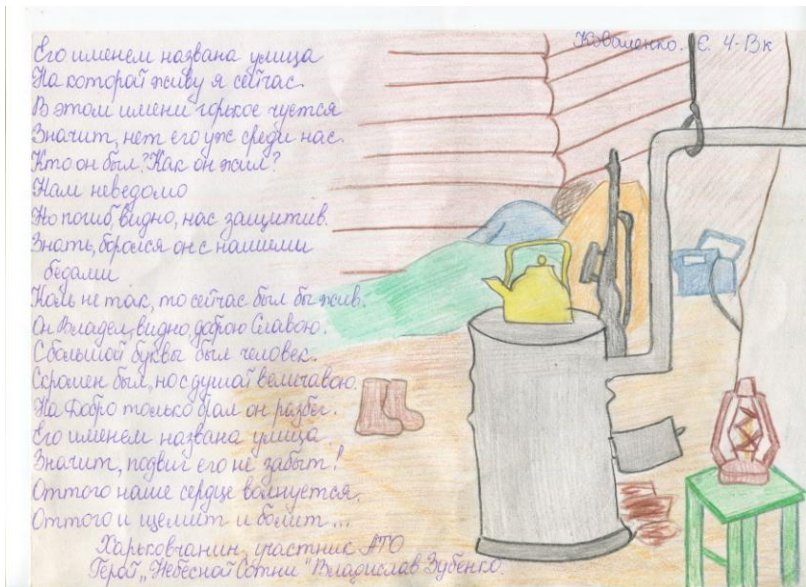 Коваленко. Є. 4-Вк
Его именем названа улица
На которой живу я сейчас.
В этом имени горькое чуется
Значит, нет его уж среди нас.
Кто он был? Как он жил?
Нам неведомо
Но погиб, видно, нас защитив.
Знать, боролся он с нашими
бедами
Коль не так, то сейчас был бы жив.
Он Владел, видно доброю Славою.
С большой буквы был человек.
Скромен был, но с душой величавою.
На Добро только брал он разбег.
Его именем названа улица
Значит, подвиг его не забыт!
Оттого наше сердце волнуется.
Оттого и щемит и болит...
Харьковчанин, участник АТО
Герой „Небесной Сотни" Владислав Зубенко.